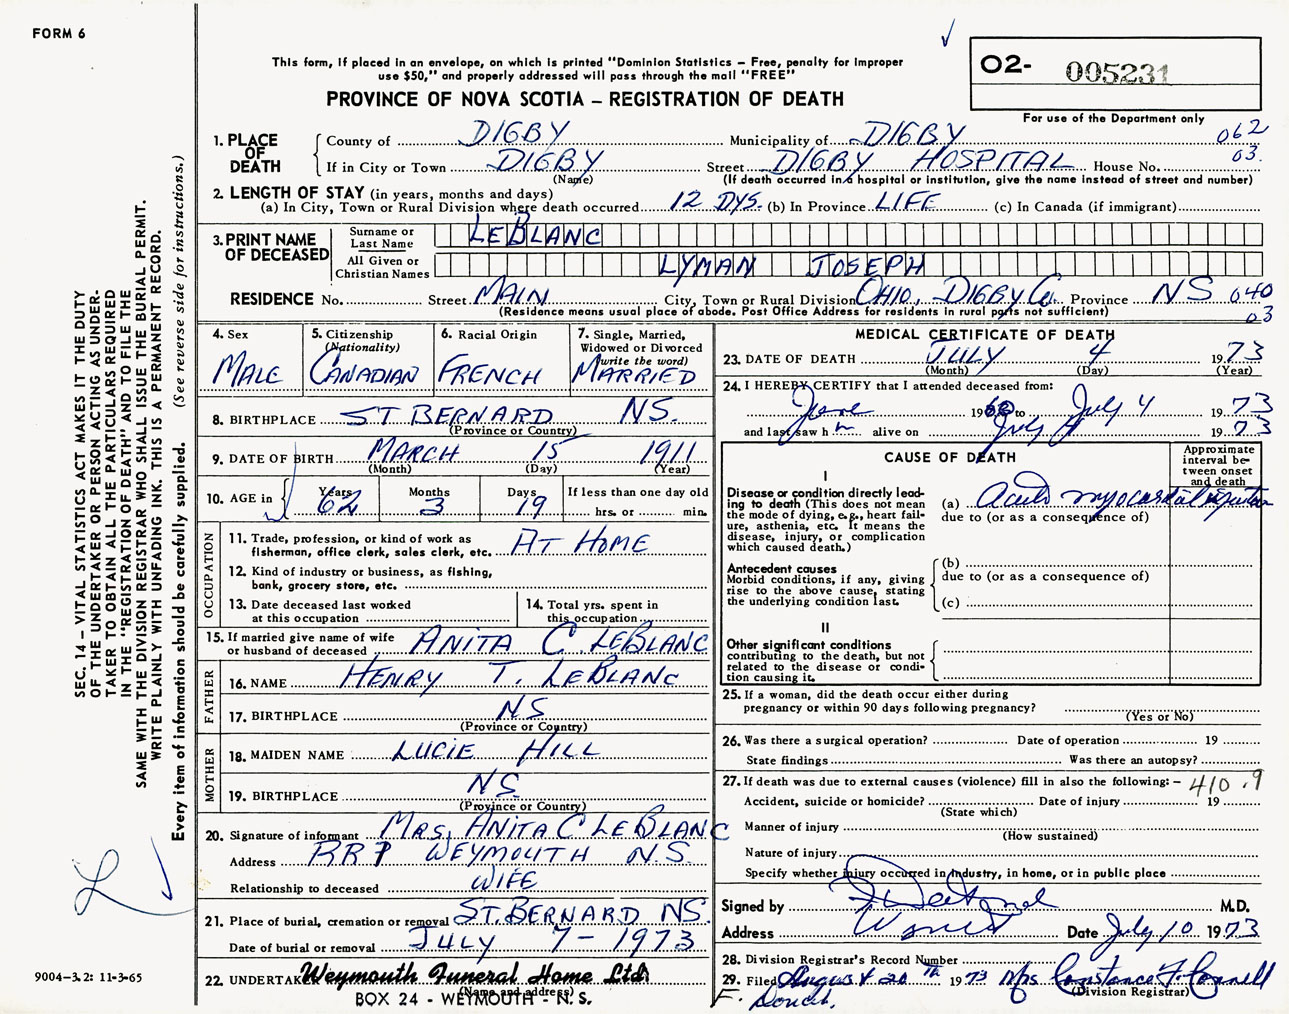 FORM 6
This form, if placed in an envelope, on which is printed "Dominion Statistics – Free, penalty for improper
use $50," and properly addressed will pass through the mail "FREE"
PROVINCE OF NOVA SCOTIA – REGISTRATION OF DEATH
O2- 005231
For use of the Department only
062
03.
1. PLACE OF DEATH
County of DIGBY Municipality of DIGBY
If in City or Town DIGBY Street DIGBY HOSPITAL House No.
(Name) (If death occurred in a hospital or institution, give the name instead of street and number)
2. LENGTH OF STAY (in years, months and days)
(a) In City, Town or Rural Division where death occurred 12 DYS. (b) In Province LIFE (c) In Canada (if immigrant)
3. PRINT NAME OF DECEASED
Surname or Last Name LEBLANC
All Given or Christian Names LYMAN JOSEPH
RESIDENCE No. Street MAIN City, Town or Rural Division OHIO, DIGBY Co. Province NS 040
(Residence means usual place of abode. Post Office Address for residents in rural parts not sufficient) 03
4. Sex MALE
5. Citizenship (Nationality) CANADIAN
6. Racial Origin FRENCH
7. Single, Married, Widowed or Divorced (write the word) MARRIED
8. BIRTHPLACE ST BERNARD NS.
(Province or Country)
9. DATE OF BIRTH MARCH 15 1911
(Month) (Day) (Year)
10. AGE in Years 62 Months 3 Days 19 If less than one day old
hrs. or min.
OCCUPATION
11. Trade, profession, or kind of work as
fisherman, office clerk, sales clerk, etc. AT HOME
12. Kind of industry or business, as fishing,
bank, grocery store, etc.
13. Date deceased last worked
at this occupation
14. Total yrs. spent in
this occupation
15. If married give name of wife
or husband of deceased ANITA C LEBLANC
FATHER
16. NAME HENRY T. LEBLANC
17. BIRTHPLACE NS
(Province or Country)
MOTHER
18. MAIDEN NAME LUCIE HILL
19. BIRTHPLACE NS
(Province or Country)
20. Signature of informant MRS. ANITA C LEBLANC
Address RR 1 WEYMOUTH N.S.
Relationship to deceased WIFE
21. Place of burial, cremation or removal ST. BERNARD NS.
Date of burial or removal JULY 7 - 1973
22. UNDERTAKER Weymouth Funeral Home Ltd.
(Name and address)
BOX 24 - WEYMOUTH - N. S.
MEDICAL CERTIFICATE OF DEATH
23. DATE OF DEATH JULY 4 1973
(Month) (Day) (Year)
24. I HEREBY CERTIFY that I attended deceased from:
June 1960 to July 4 1973
and last saw h im alive on July 4 1973
CAUSE OF DEATH
Approximate interval between onset and death
I
Disease or condition directly leading to death (This does not mean the mode of dying, e.g., heart failure, asthenia, etc. It means the disease, injury, or complication which caused death.)
(a) Acute myocardial
due to (or as a consequence of)
Antecedent causes
Morbid conditions, if any, giving rise to the above cause, stating the underlying condition last.
(b)
due to (or as a consequence of)
(c)
II
Other significant conditions
contributing to the death, but not related to the disease or condition causing it.
25. If a woman, did the death occur either during
pregnancy or within 90 days following pregnancy?
(Yes or No)
26. Was there a surgical operation? Date of operation 19
State findings Was there an autopsy?
27. If death was due to external causes (violence) fill in also the following: – 410.9
Accident, suicide or homicide? Date of injury 19
(State which)
Manner of injury
(How sustained)
Nature of injury
Specify whether injury occurred in industry, in home, or in public place
Signed by M.D.
Address Date July 10 1973
28. Division Registrar's Record Number
29. Filed August 20th 1973 Mrs Constance F. Connell
(Division Registrar)
SEC. 14 – VITAL STATISTICS ACT MAKES IT THE DUTY
OF THE UNDERTAKER OR PERSON ACTING AS UNDER-
TAKER TO OBTAIN ALL THE PARTICULARS REQUIRED
IN THE "REGISTRATION OF DEATH" AND TO FILE THE
SAME WITH THE DIVISION REGISTRAR WHO SHALL ISSUE THE BURIAL PERMIT.
WRITE PLAINLY WITH UNFADING INK. THIS IS A PERMANENT RECORD.
Every item of information should be carefully supplied. (See reverse side for instructions.)
9004–3.2: 11-3-65